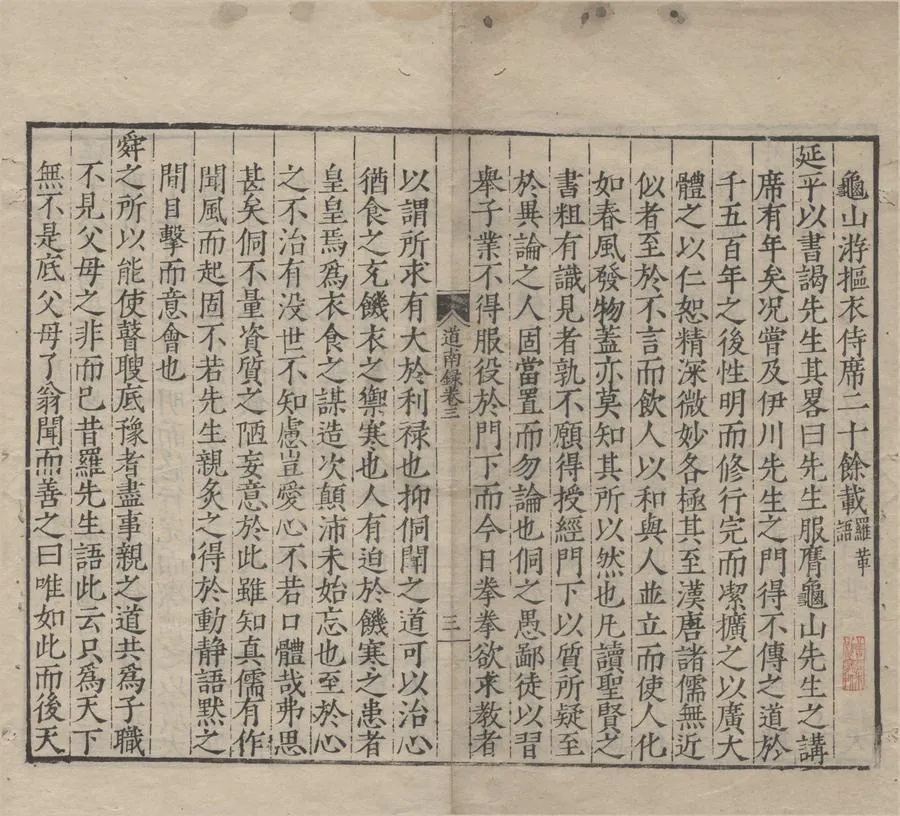 龜山游摳衣侍席二十餘載羅革語
延平以書謁先生其畧曰先生服膺龜山先生之講
席有年矣况嘗及伊川先生之門得不傳之道於
千五百年之後性明而修行完而潔擴之以廣大
體之以仁恕精深微妙各極其至漢唐諸儒無近
似者至於不言而飲人以和與人並立而使人化
如春風發物蓋亦莫知其所以然也凡讀聖賢之
書粗有識見者孰不願得授經門下以質所疑至
於異論之人固當置而勿論也侗之愚鄙徒以習
舉子業不得服役於門下而今日拳拳欲求教者
道南録卷三
三
以謂所求有大於利禄也抑侗聞之道可以治心
猶食之充饑衣之禦寒也人有迫於饑寒之患者
皇皇焉爲衣食之謀造次顛沛未始忘也至於心
之不治有没世不知慮豈愛心不若口體哉弗思
甚矣侗不量資質之陋妄意於此雖知真儒有作
聞風而起固不若先生親炙之得於動静語默之
間目擊而意會也
舜之所以能使瞽瞍底豫者盡事親之道共爲子職
不見父母之非而已昔羅先生語此云只爲天下
無不是底父母了翁聞而善之曰唯如此而後天